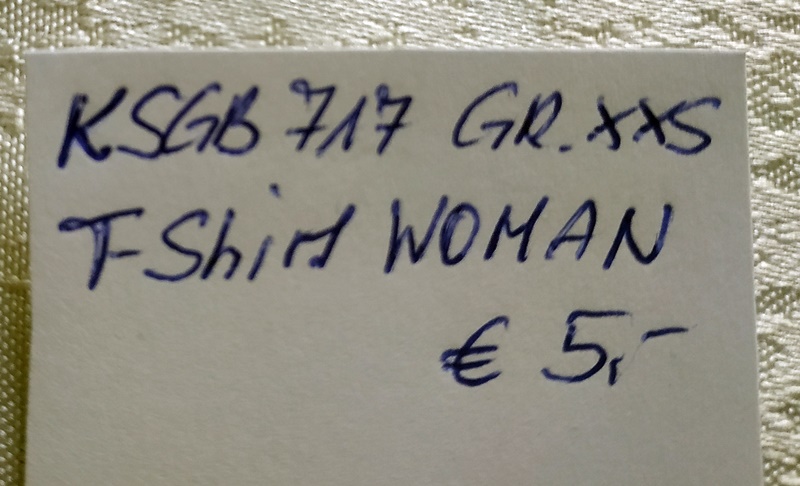 KSGB 717 GR. XXS
T-Shirt WOMAN
€ 5,-